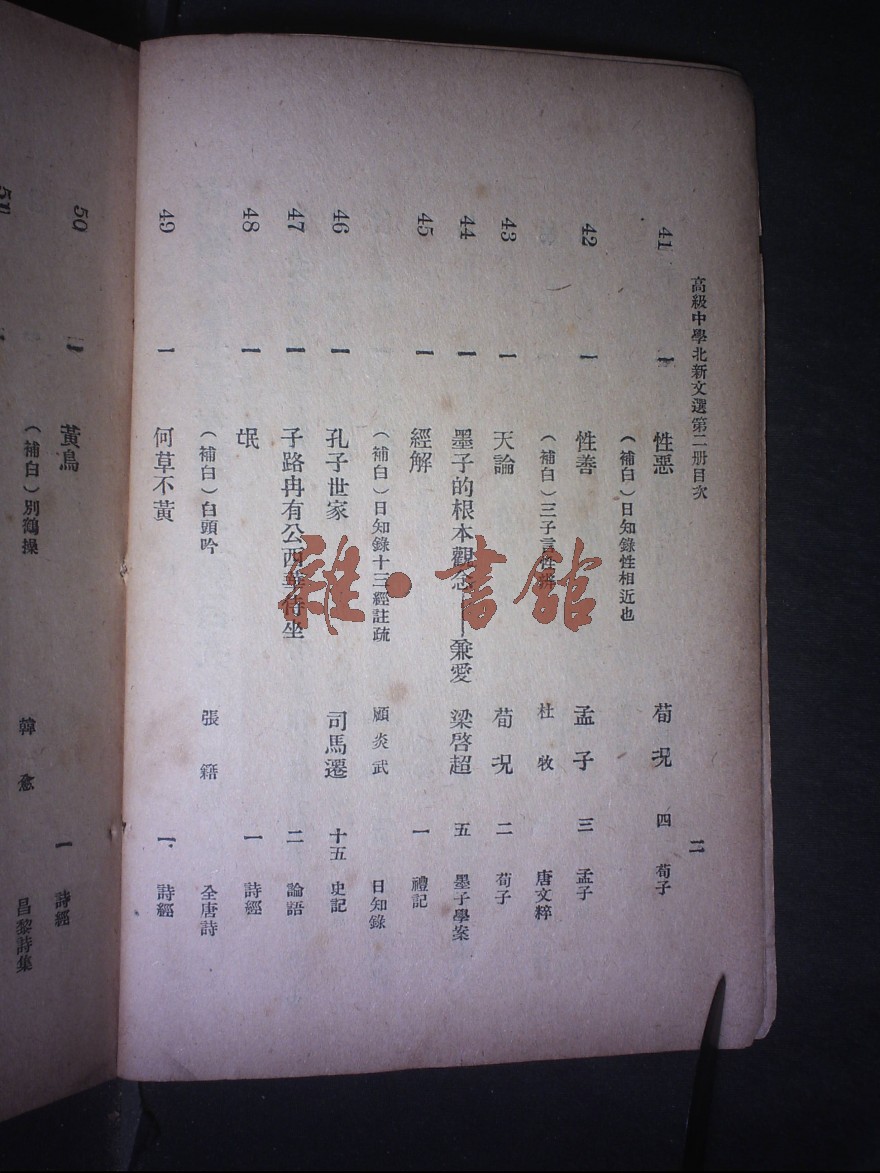 高級中學北新文選第二册目次 二
41 一 性惡 荀況 四 荀子
（補白）日知錄性相近也
42 一 性善 孟子 三 孟子
（補白）三子言性辯 杜牧 唐文粹
43 一 天論 荀況 二 荀子
44 一 墨子的根本觀念——兼愛 梁啓超 五 墨子學案
45 一 經解 一 禮記
（補白）日知錄十三經註疏 顧炎武 日知錄
46 一 孔子世家 司馬遷 十五 史記
47 一 子路冉有公西華侍坐 二 論語
48 一 氓 一 詩經
（補白）白頭吟 張籍 全唐詩
49 一 何草不黃 一 詩經
50 一 黃鳥 一 詩經
（補白）別鶴操 韓愈 昌黎詩集
51
雜·書館